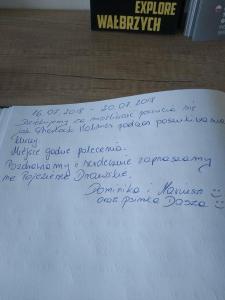 EXPLORE
WAŁBRZYCH
16.07.2018 - 20.07.2018
Dziękujemy za możliwość poczucia się
jak Sherlock Holmes podczas poszukiwania
kluczy
Miejsce godne polecenia.
Pozdrawiamy i serdecznie zapraszamy
na Pojezierze Drawskie.
Dominika i Mariusz
oraz psinka Dasza